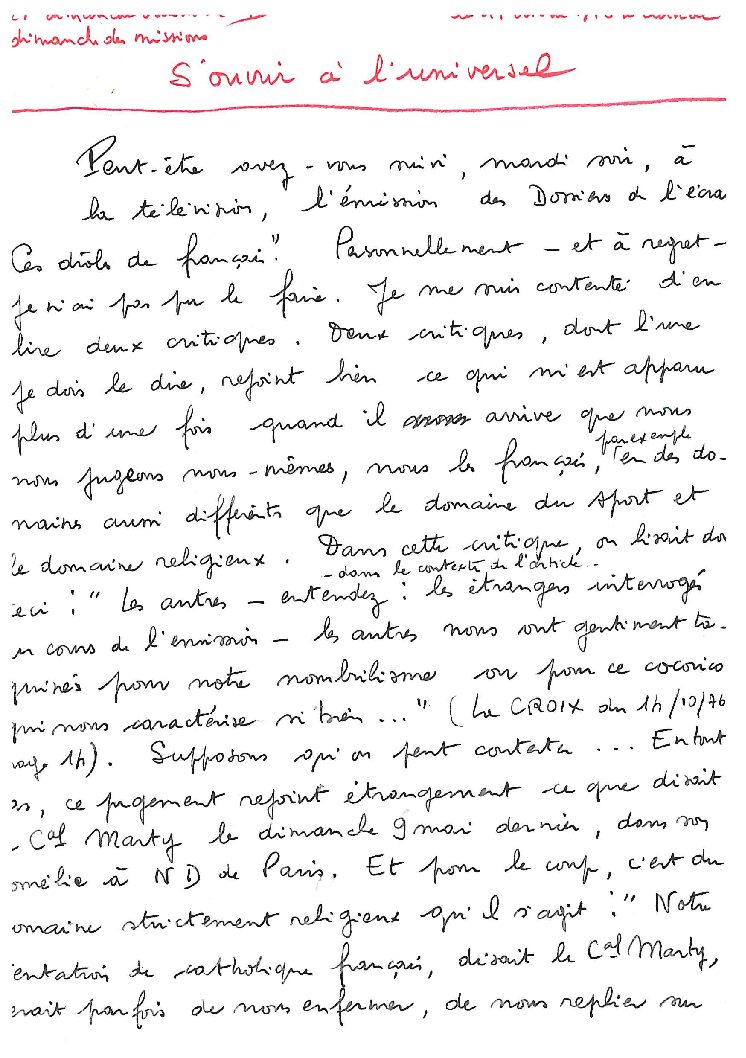 dimanche des missions
S'ouvrir à l'universel
Peut-être avez-vous suivi, mardi soir, à
la télévision, l'émission des Dossiers de l'écra
Ces drôles de français". Personnellement - et à regret -
je n'ai pas pu le faire. Je me suis contenté d'en
lire deux critiques. Deux critiques, dont l'une
je dois le dire, rejoint bien ce qui m'est apparu
plus d'une fois quand il arrive que nous
nous jugeons nous-mêmes, nous les français, par exemple en des do-
maines aussi différents que le domaine du sport et
le domaine religieux. Dans cette critique, on lisait
eci : " Les autres - entendez : - dans le contexte de l'article - les étrangers interrogés
u cours de l'émission - les autres nous ont gentiment ta-
quinés pour notre nombrilisme ou pour ce cocorico
qui nous caractérise si bien ..." (La CROIX du 14/10/76
page 14). Supposons qu'on peut contester ... En tout
as, ce jugement rejoint étrangement ce que disait
Cal Marty le dimanche 9 mai dernier, dans son
omélie à N D de Paris. Et pour le coup, c'est du
omaine strictement religieux qu'il s'agit : " Notre
entation de catholique français, disait le Cal Marty,
erait parfois de nous enfermer, de nous replier sur